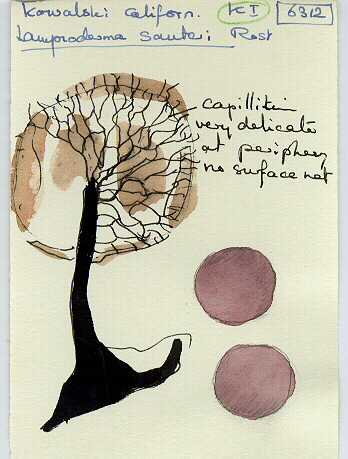 Kowalski Californ. KI 6312
Lamproderma Sauteri Rost
capillitium
very delicate
at periphery
no surface net